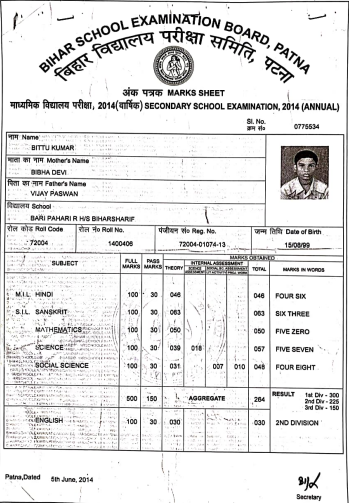 BIHAR SCHOOL EXAMINATION BOARD, PATNA
बिहार विद्यालय परीक्षा समिति, पटना
अंक पत्रक MARKS SHEET
माध्यमिक विद्यालय परीक्षा, 2014(वार्षिक) SECONDARY SCHOOL EXAMINATION, 2014 (ANNUAL)
Sl. No.
क्रम सं० 0775534
नाम Name
BITTU KUMAR
माता का नाम Mother's Name
BIBHA DEVI
पिता का नाम Father's Name
VIJAY PASWAN
विद्यालय School
BARI PAHARI R H/S BIHARSHARIF
रोल कोड Roll Code रोल नं० Roll No. पंजीयन सं० Reg. No. जन्म तिथि Date of Birth
72004 1400406 72004-01074-13 15/08/99
MARKS OBTAINED
SUBJECT FULL MARKS PASS MARKS THEORY INTERNAL ASSESSMENT TOTAL MARKS IN WORDS
M.I.L. HINDI 100 30 046 046 FOUR SIX
S.I.L. SANSKRIT 100 30 063 063 SIX THREE
MATHEMATICS 100 30 050 050 FIVE ZERO
SCIENCE 100 30 039 018 057 FIVE SEVEN
SOCIAL SCIENCE 100 30 031 007 010 048 FOUR EIGHT
500 150 AGGREGATE 264 RESULT 1st Div - 300
2nd Div - 225
3rd Div - 150
ENGLISH 100 30 030 030 2ND DIVISION
Patna,Dated 5th June, 2014
Secretary